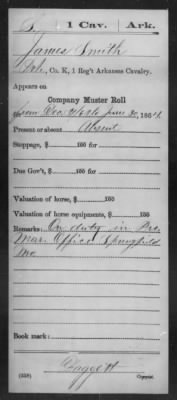 S. | 1 Cav. | Ark.
James Smith
Pvt., Co. K, 1 Reg't Arkansas Cavalry.
Appears on
Company Muster Roll
from Dec 31/63 to June 30, 1864.
Present or absent Absent
Stoppage, $ 100 for
Due Gov't, $ 100 for
Valuation of horse, $ 100
Valuation of horse equipments, $ 100
Remarks: On duty in Pro.
Mar. Office Springfield
Mo
Book mark:
(358)
Copyist.